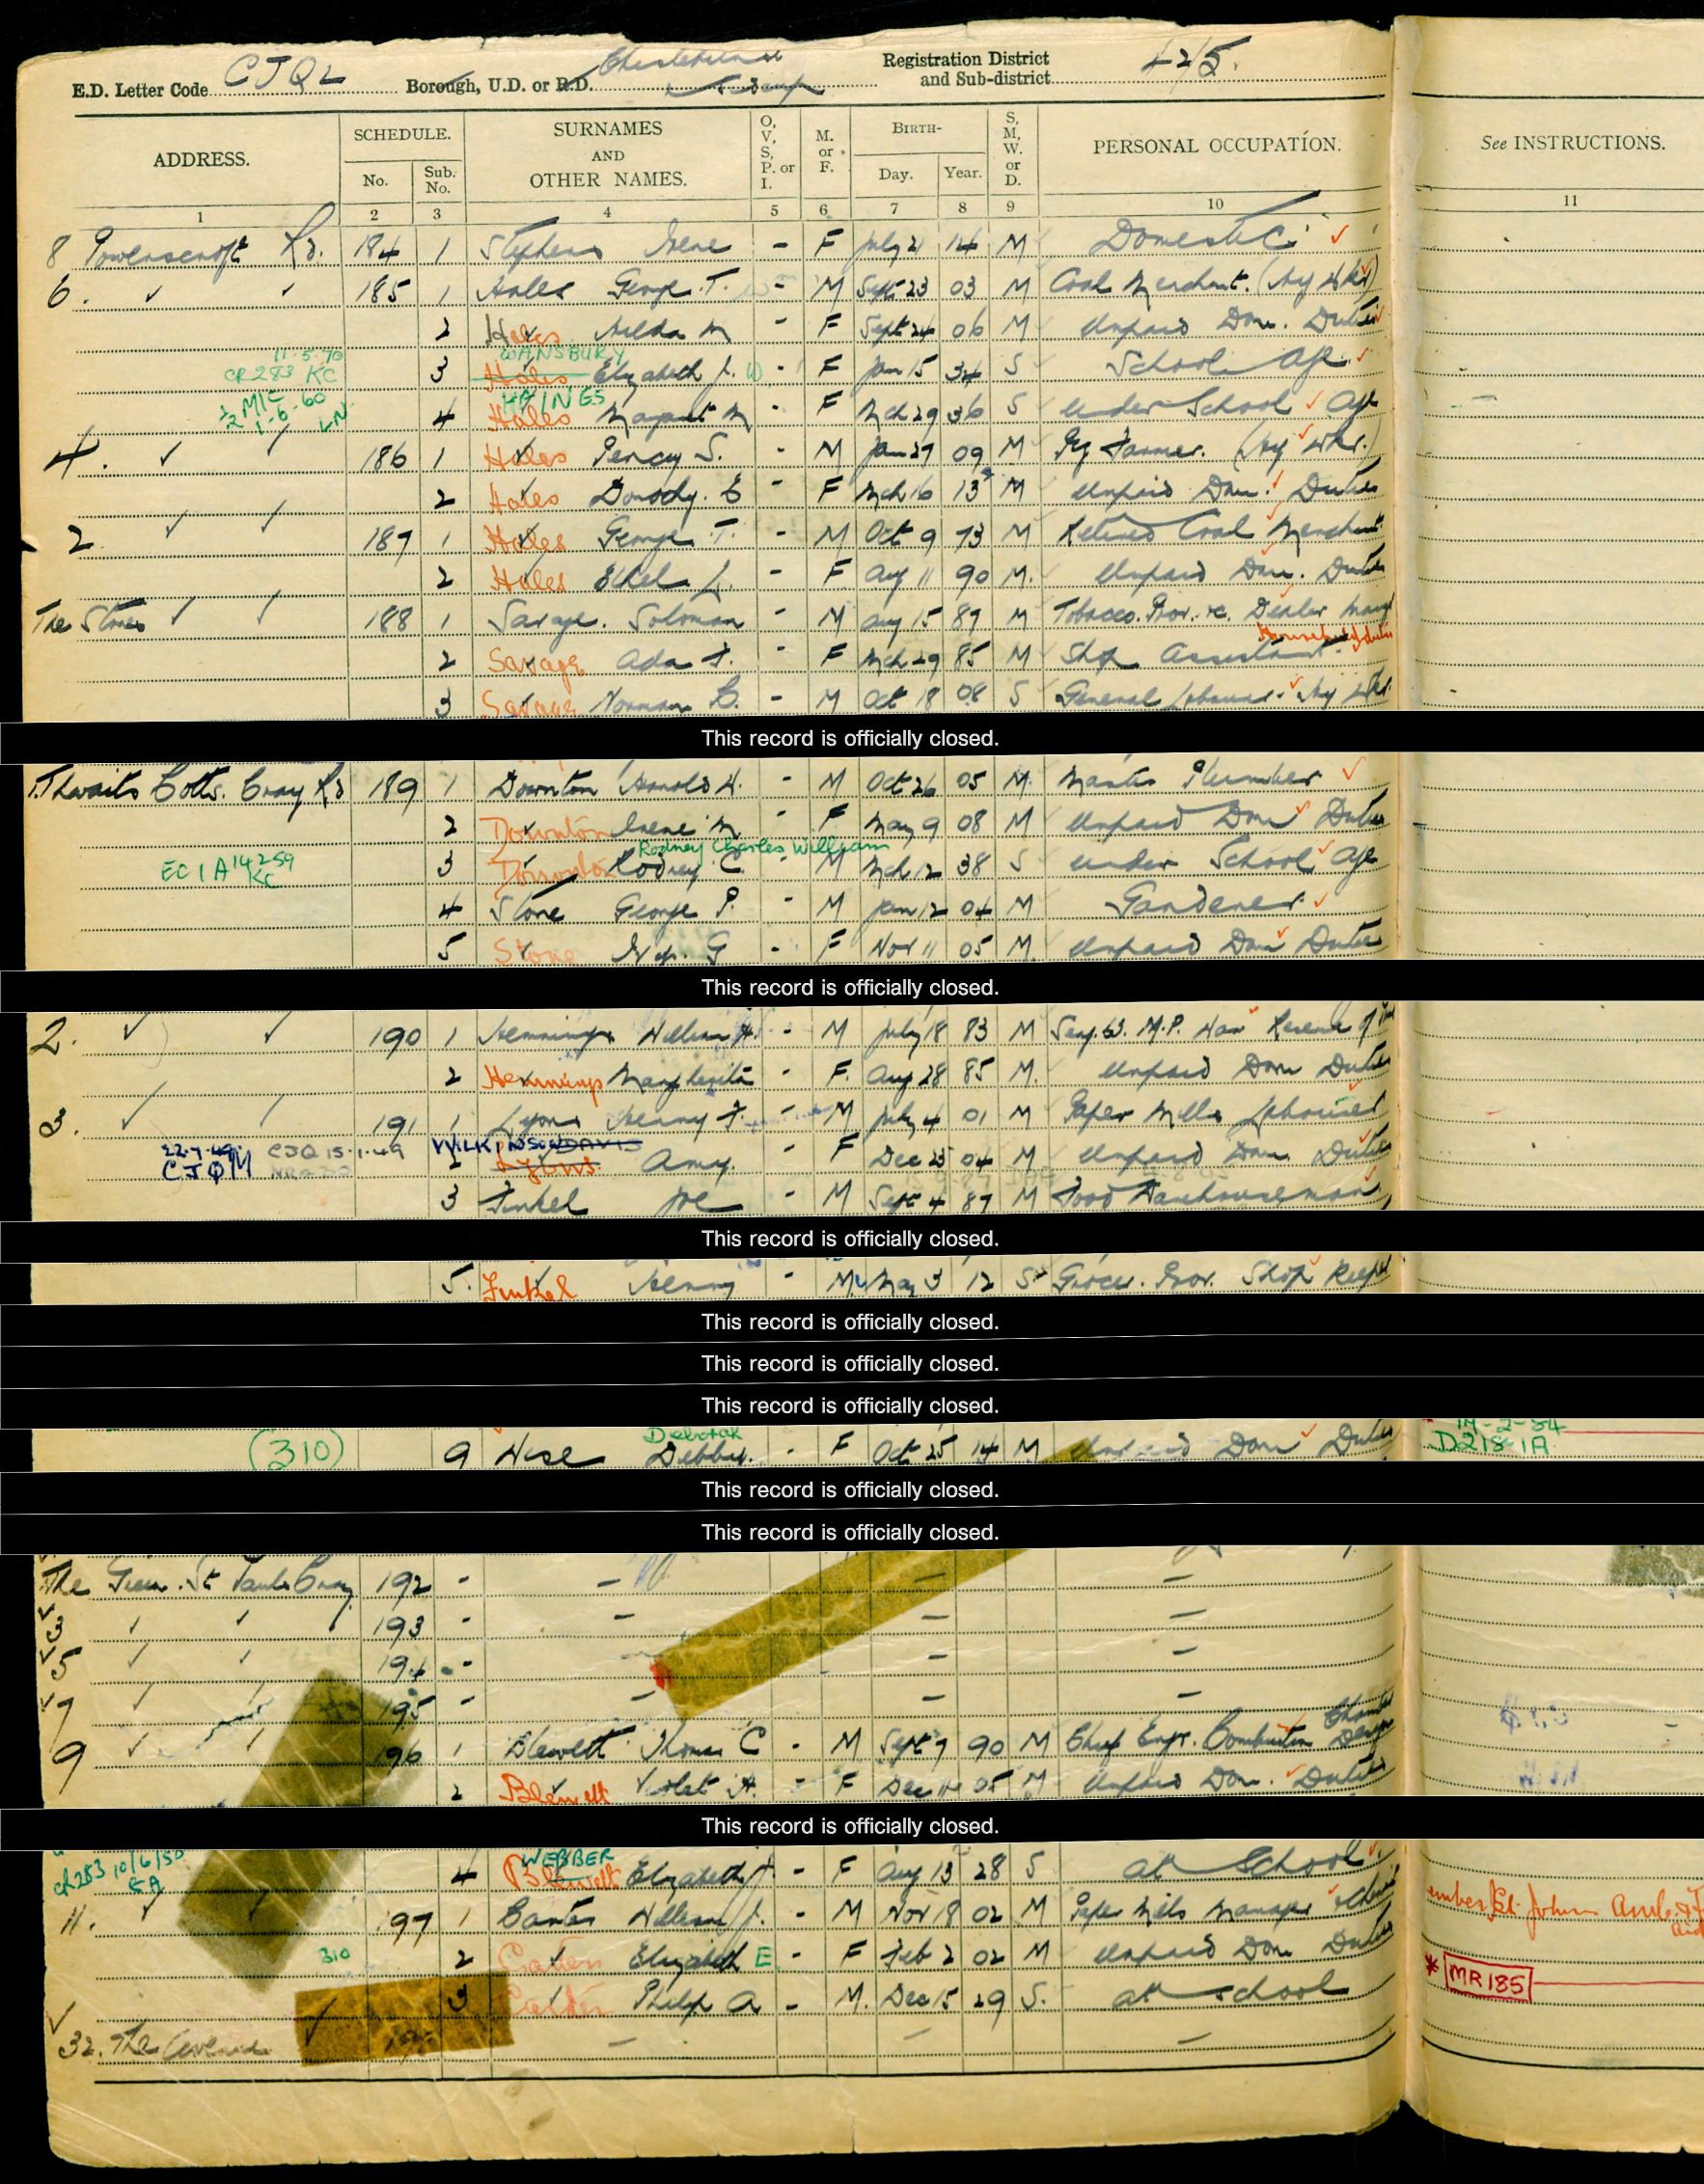 E.D. Letter Code CJQL Borough, U.D. or R.D. Chislehurst & Sidcup Registration District and Sub-district 42/5.
ADDRESS. SCHEDULE. No. Sub. No. SURNAMES AND OTHER NAMES. O, V, S, P. or I. M. or F. BIRTH- Day. Year. S, M, W. or D. PERSONAL OCCUPATION. See INSTRUCTIONS.
1 2 3 4 5 6 7 8 9 10 11
8 Powerscroft Rd. 184 1 Stephens Irene - F July 21 14 M Domestic
6. ✓ ✓ 185 1 Hales George T. - M Sept 23 03 M Coal Merchant. (Hy Wkr)
2 Hales Hilda M - F Sept 24 06 M Unpaid Dom. Duties
WANSBURY
11.5.70 CR283 KC 3 Hales Elizabeth J. W - F Jan 15 34 S School Age
HAINES
1/2 MIC 1-6-60 LN 4 Hales Margaret M - F Mch 29 36 S Under School Age
4. ✓ ✓ 186 1 Hales Percy S. - M Jan 29 09 M Pig Farmer. (Hy Wkr.)
2 Hales Dorothy. E - F Mch 16 13 M Unpaid Dom. Duties
2 ✓ ✓ 187 1 Hales George T. - M Oct 9 73 M Retired Coal Merchant
2 Hales Ethel L. - F Aug 11 90 M. Unpaid Dom. Duties
The Stores ✓ ✓ 188 1 Savage. Soloman - M Aug 15 89 M Tobacco. Prov. &c. Dealer
2 Savage Ada F. - F Mch 29 85 M Shop Assistant. Household duties
3 Savage Norman B. - M Oct 18 08 S General Labourer Hy Wkr.
This record is officially closed.
1. Thwaits Cotts. Cray Rd 189 1 Downton Arnold H. - M Oct 26 05 M. Master Plumber
2 Downton Irene M - F May 9 08 M Unpaid Dom Duties
Rodney Charles William
EC1A 14259 KC 3 Downton Rodney C. M Mch 12 38 S Under School Age
4 Stone George P. - M Jan 12 04 M Gardener
5 Stone G - F Nov 11 05 M. Unpaid Dom Duties
This record is officially closed.
2. ✓ ✓ 190 1 Hemmings William H. - M July 18 83 M
2 Hemmings Margherita - F. Aug 28 85 M. Unpaid Dom Duties
3. ✓ ✓ 191 1 Lyons Henry F. - M July 4 01 M Paper Mills Labourer
22.7.49 CJQM CJQ 15.1.49 WILKINSON DAVIS
2 Lyons Amy. - F Dec 25 04 M Unpaid Dom Duties
3 Finkel Joe - M Sept 4 87 M Food Warehouseman
This record is officially closed.
5. Finkel Henry - M May 3 12 S Grocer. Prov. Shop Keeper
This record is officially closed.
This record is officially closed.
This record is officially closed.
Deborah
(310) 9 Wise Debby. - F Oct 25 14 M Unpaid Dom Duties D218 1A
This record is officially closed.
This record is officially closed.
The Green. St Pauls Cray 192 - - - -
3 ✓ ✓ 193 - - - -
5 ✓ ✓ 194 - - -
7 ✓ ✓ 195 - - - -
9 ✓ ✓ 196 1 Blewett Thomas C - M Sept 7 90 M Chief Engr. Combustion
2 Blewett Violet A. - F Dec 11 05 M Unpaid Dom. Duties
This record is officially closed.
WEBBER
CR283 10/6/50 4 Blewett Elizabeth J. - F Aug 13 28 S at School
11. ✓ ✓ 197 1 Carter William J. - M Nov 18 02 M Paper Mills Manager
ember St. John Amb.
310 2 Carter Elizabeth E - F Feb 2 02 M Unpaid Dom Duties
* MR185
3 Carter Philip A - M. Dec 15 29 S. at School
32. The Avenue - - -